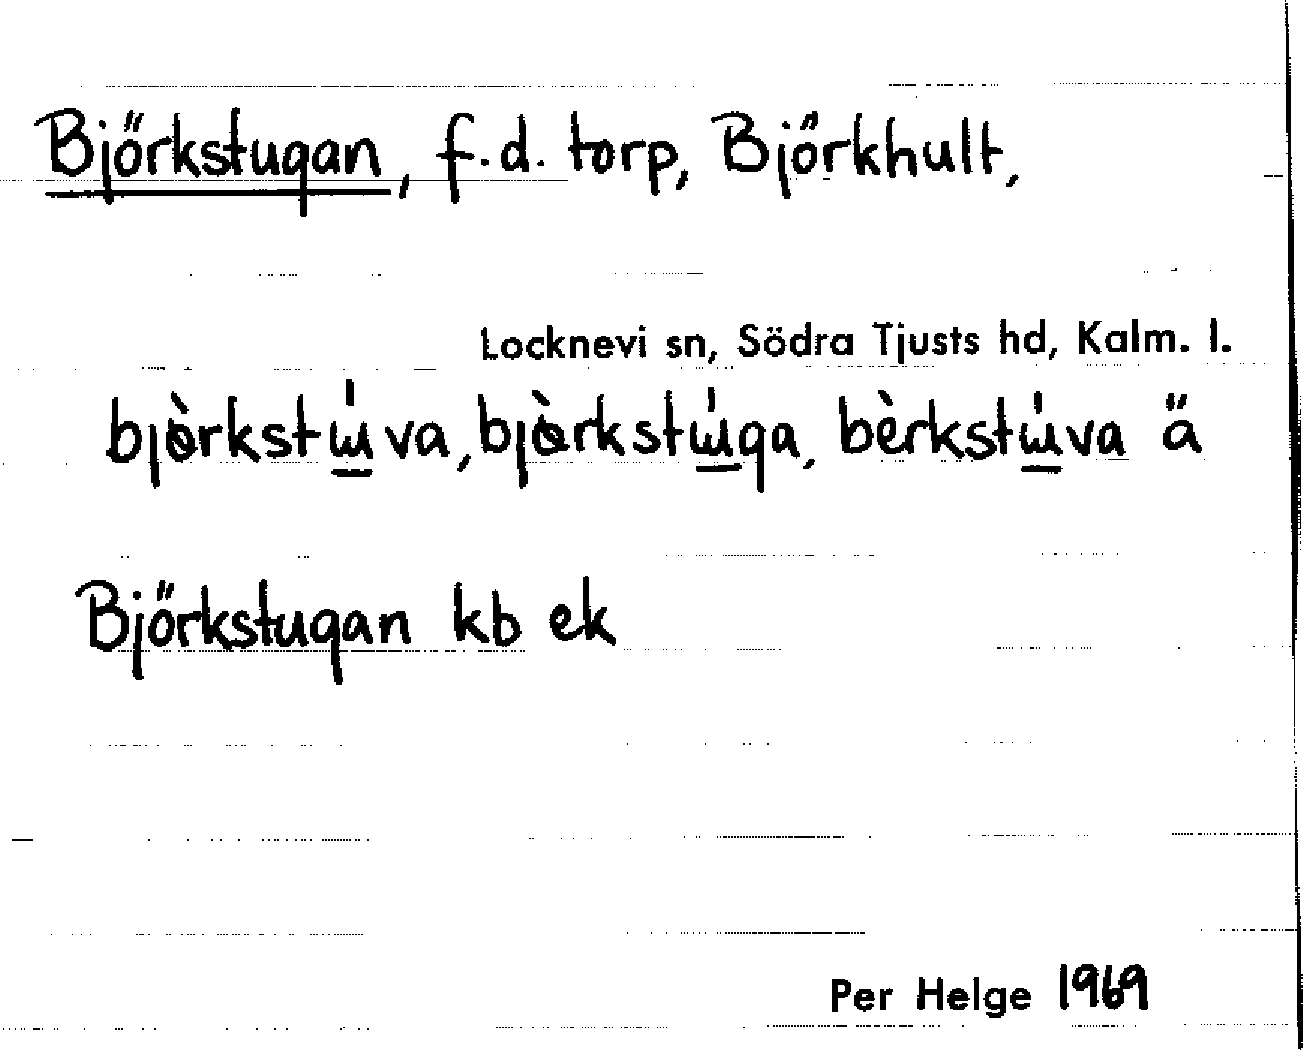 Björkstugan, f.d. torp, Björkhult,
Locknevi sn, Södra Tjusts hd, Kalm. l.
bjɵ̀rkstɯ̲́va, bjɵ̀rkstɯ̲́ga, bèrkstɯ̲́va ä
Björkstugan kb ek
Per Helge 1969